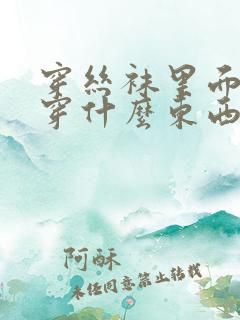 穿丝袜里面
穿什麼东西
阿酥
未经同意禁止转载